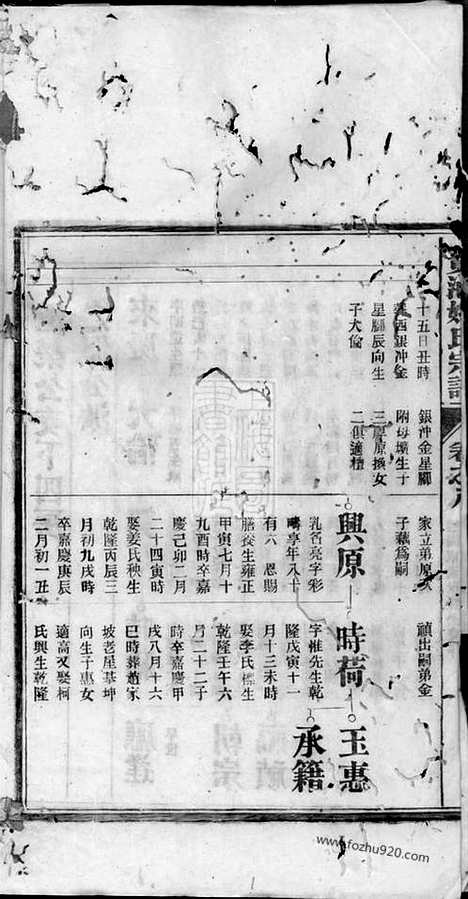 氏宗譜
十五日丑時
西銀沖金
星腳辰向生
子大倫
銀沖金星腳
附母壙生子
三原換女
二俱適檀
家立弟原次
子藕為嗣
禎出嗣弟金
興原
時荷
玉惠
承籍
乳名亮字彩
疇享年八十
有六 恩賜
膳養生雍正
甲寅七月十
九酉時卒嘉
慶己卯二月
二十四寅時
娶姜氏秧生
乾隆丙辰三
月初九戌時
卒嘉慶庚辰
二月初一丑
字惟先生乾
隆戊寅十一
月十三未時
娶李氏標生
乾隆壬午六
月二十二子
時卒嘉慶甲
戌八月十六
巳時葬趙家
坡老星基坤
向生子惠女
適高又娶柯
氏興生乾隆
www.fozhu920.com